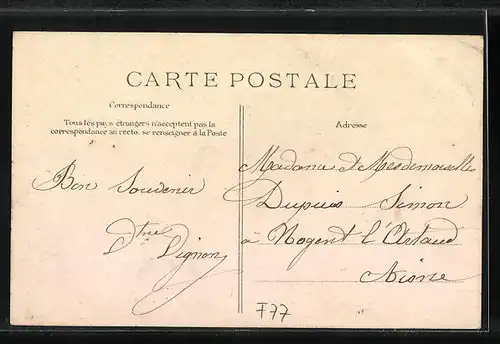 CARTE POSTALE
Correspondance
Tous les pays étrangers n'acceptent pas la
correspondance au recto. se renseigner à la Poste
Adresse
Bon Souvenir
Vignon
Madame et Mesdemoiselles
Dupuis Simon
à Nogent l'Artaud
Aisne
F77